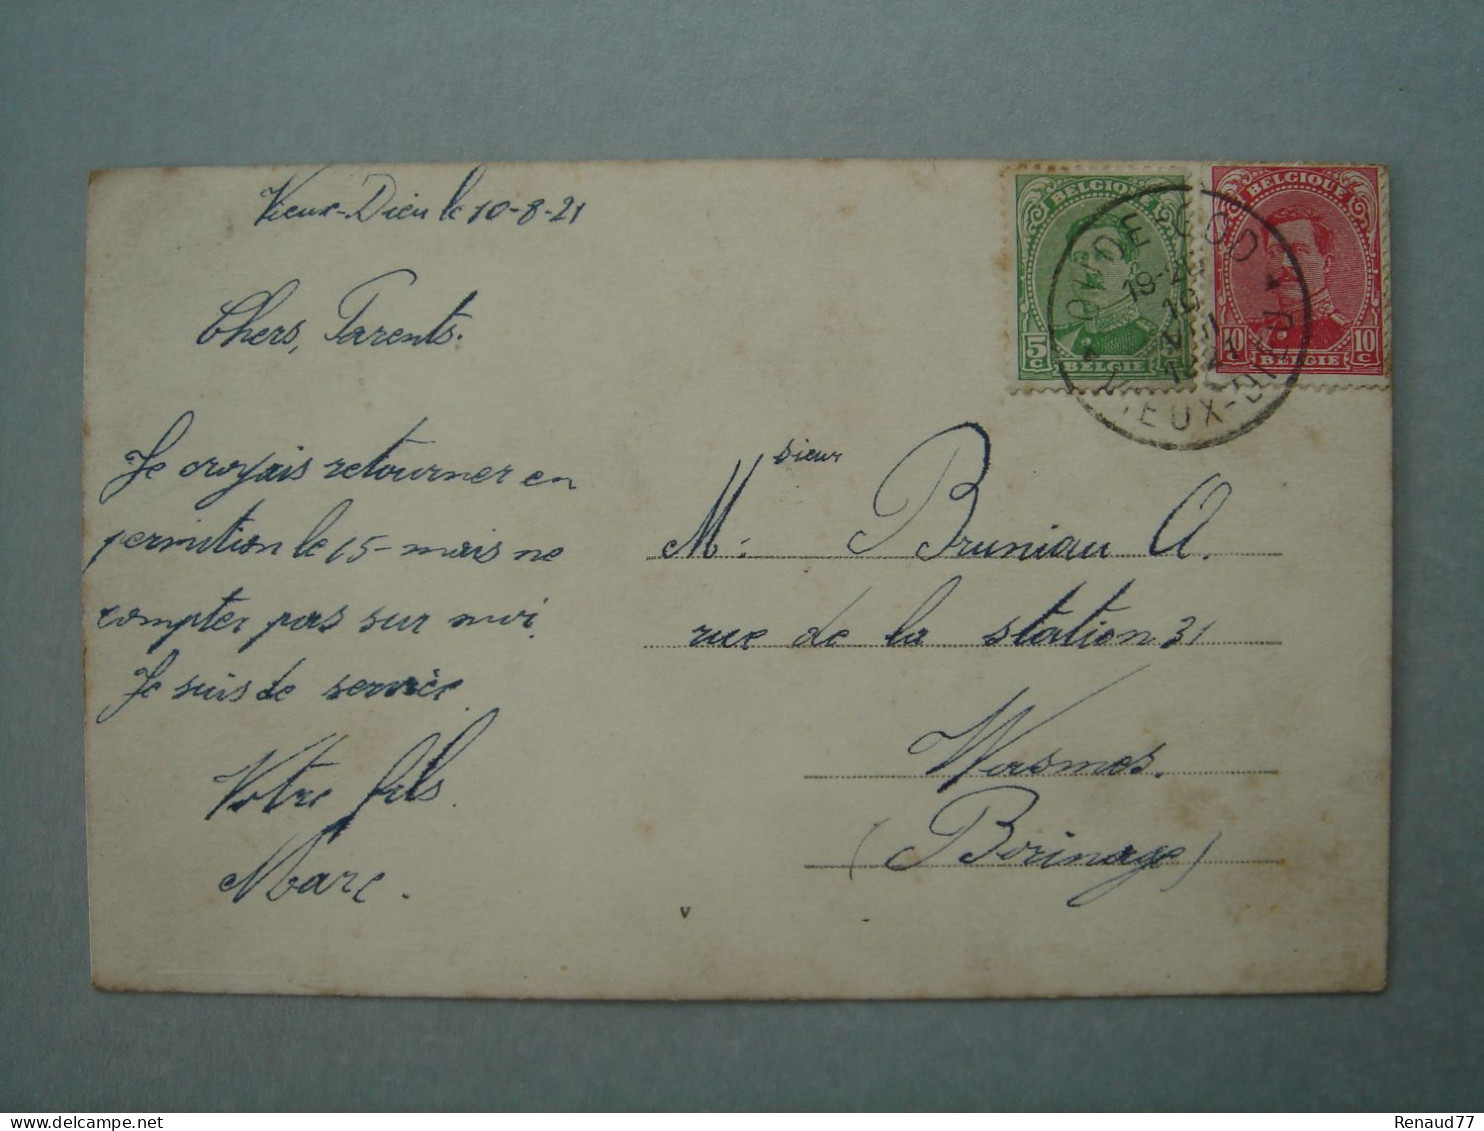 Vieux-Dieu le 10-8-21
Chers, Parents.
Je croyais retourner en
permition le 15- mais ne
compter pas sur moi.
Je suis de service.
Votre fils.
Marc.
BELGIQUE
5 C
BELGIE
BELGIQUE
10 10
C C
BELGIE
OUDE GOD
19-2
10
VIII
1921
VIEUX-DIEU
Msieur Bruniau A.
rue de la station 31
Wasmes.
(Borinage)
V
Renaud77